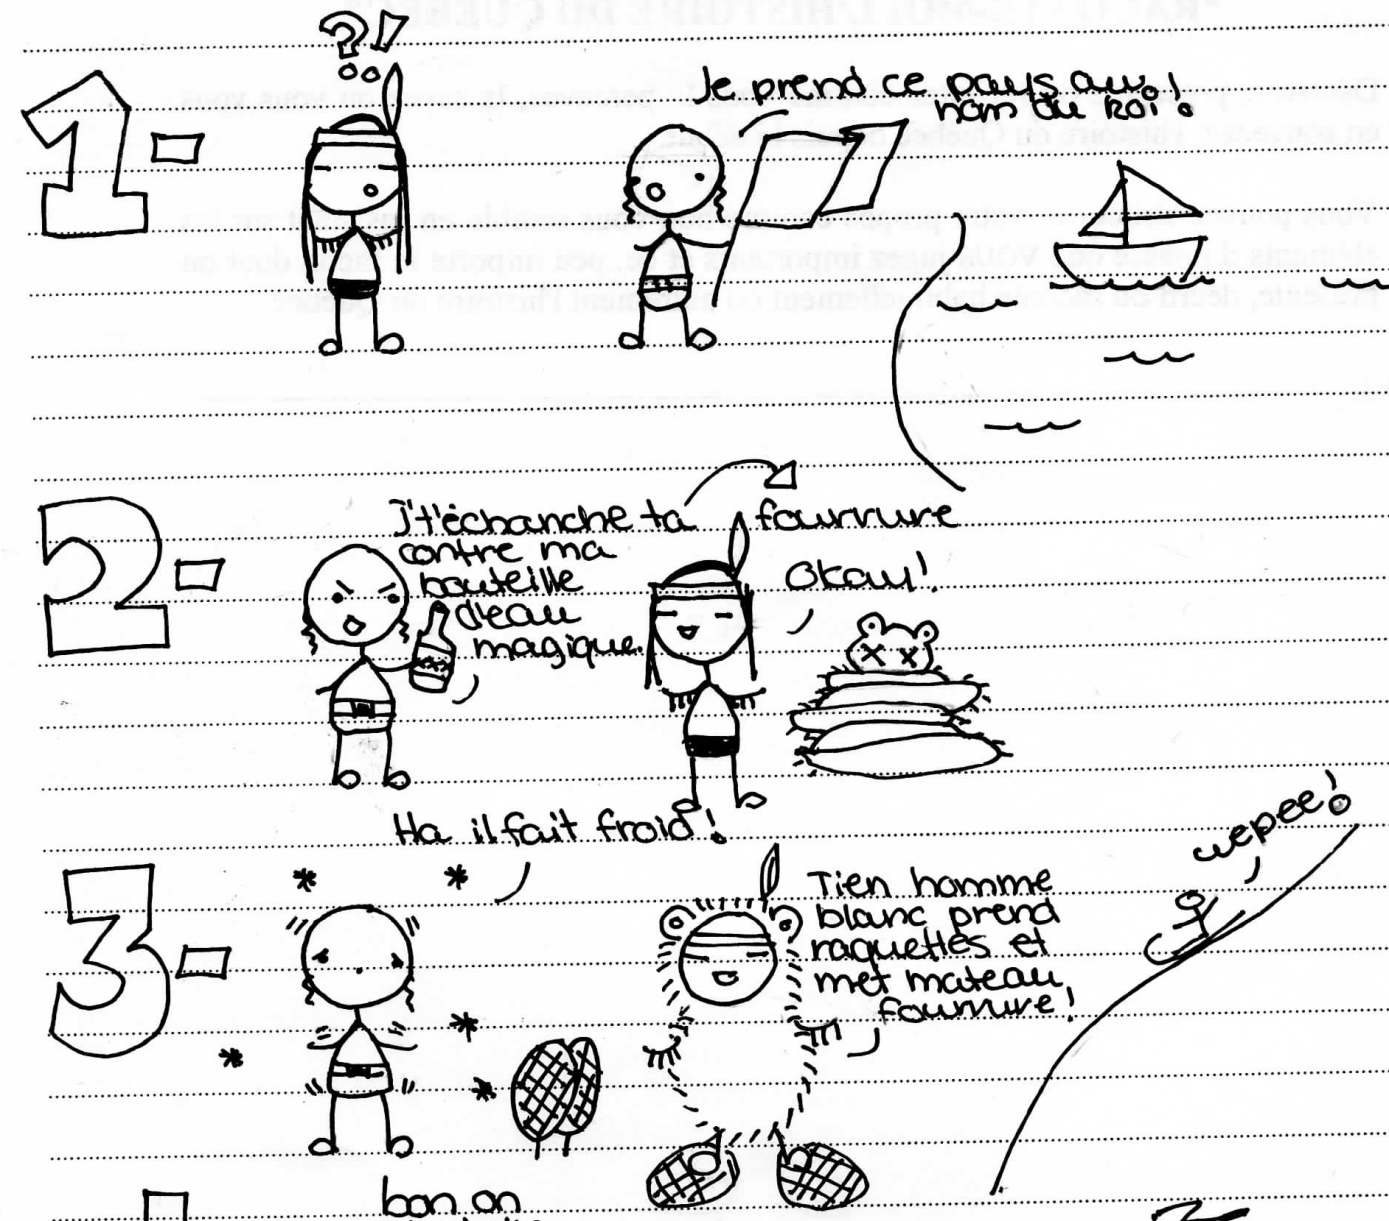 ?!
1-
Je prend ce pays au
nom du Roi!
2-
J't'échanche ta fourrure
contre ma
bouteille
d'eau
magique.
Okay!
xxx
3-
Ha il fait froid!
Tien homme
blanc prend
raquettes et
met mateau
fourrure!
wepee!
bon on